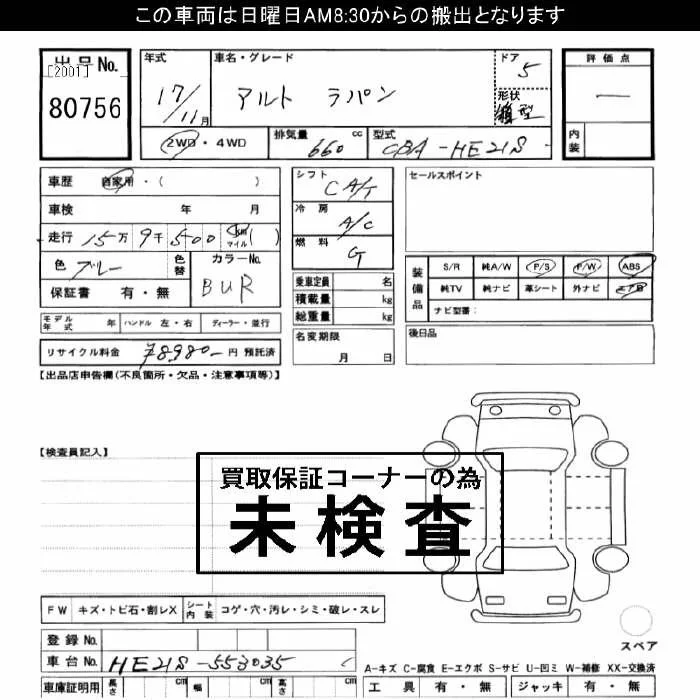 この車両は日曜日AM8:30からの搬出となります
出品No.
[2001]
80756
年式
17/11月
車名・グレード
アルト ラパン
ドア
5
形状
箱型
評価点
一
内装
2WD・4WD
排気量 660 cc
型式 CBA-HE21S
車歴 自家用・( )
車検 年 月
走行 15万9千500 km マイル ( )
色 ブルー 色替
カラーNo. BUR
保証書 有・無
シフト CA/T
冷房 A/C
燃料 G
乗車定員 名
積載量 kg
総重量 kg
セールスポイント
装備品
S/R 純A/W P/S P/W ABS
純TV 純ナビ 革シート 外ナビ エアB
ナビ型番:
モデル年式 年 ハンドル 左・右 ディーラー・並行
名変期限
月 日
後日品
リサイクル料金 78980- 円 預託済
【出品店申告欄(不良箇所・欠品・注意事項等)】
【検査員記入】
買取保証コーナーの為
未検査
FW キズ・トビ石・割レX シート内装 コゲ・穴・汚レ・シミ・破レ・スレ
スペア
登録No.
車台No. HE21S-553035
A-キズ C-腐食 E-エクボ S-サビ U-凹ミ W-補修 XX-交換済
車庫証明用 長さ cm 幅 cm 高さ cm
工具 有・無 ジャッキ 有・無